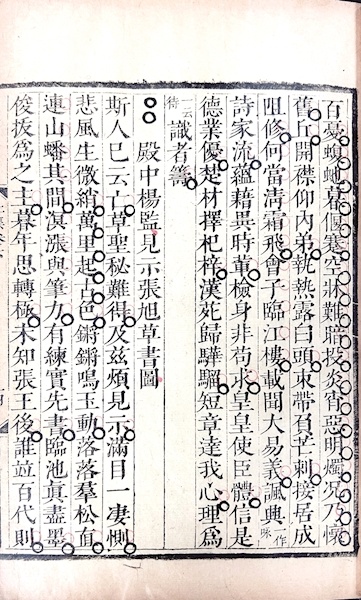 百憂蝮虵暮偃蹇空牀難暗投炎宵惡明燭况乃懷
舊丘開襟仰內弟執熱露白頭束帶負芒刺接居成
阻修何當清霜飛會子臨江樓載聞大易義諷興作詠
詩家流蘊藉異時輩檢身非苟求皇皇使臣體信是
德業優楚材擇杞梓漢苑歸驊騮短章達我心理爲
一云待識者籌
殿中楊監見示張旭草書圖
斯人已云亡草聖秘難得及兹煩見示滿目一凄惻
悲風生微綃萬里起古色鏘鏘鳴玉動落落羣松直
連山蟠其間溟漲與筆力有練實先書臨池真盡墨
俊拔爲之主暮年思轉極未知張王後誰並百代則